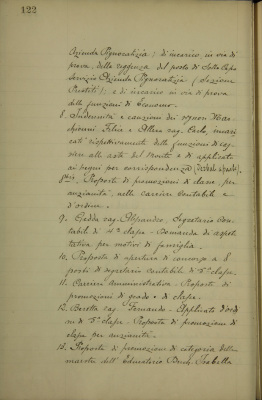 122
Azienda Pignoratizia; d'incarico, in via di
prova, della reggenza del posto di Sotto Capo
Servizio Azienda Pignoratizia (Sezione
Prestiti); e di incarico in via di prova
delle funzioni di Economo.
8. Indennità e cauzioni dei signori
Felice e rag. Carlo, incari
cati rispettivamente delle funzioni di
alle aste del Monte e di applicato
ai pegni per corrispondenza
Proposte di promozioni di classe per
anzianità, nelle carriere Contabile e
d'ordine.
9. rag. Alessandro, Segretario Con
tabile di 4ª classe - Domanda di aspet
tativa per motivi di famiglia.
10. Proposta di apertura di concorso a 8
posti di segretario contabile di 5ª classe.
11. Carriera Amministrativa - Proposte di
promozioni di grado e di classe.
12. Beretta rag. Fernando - Applicato d'ordi
ne di 5ª classe - Proposta di promozione di
classe per anzianità.
13. Proposta di promozione di categoria della
maestra dell' Isabella